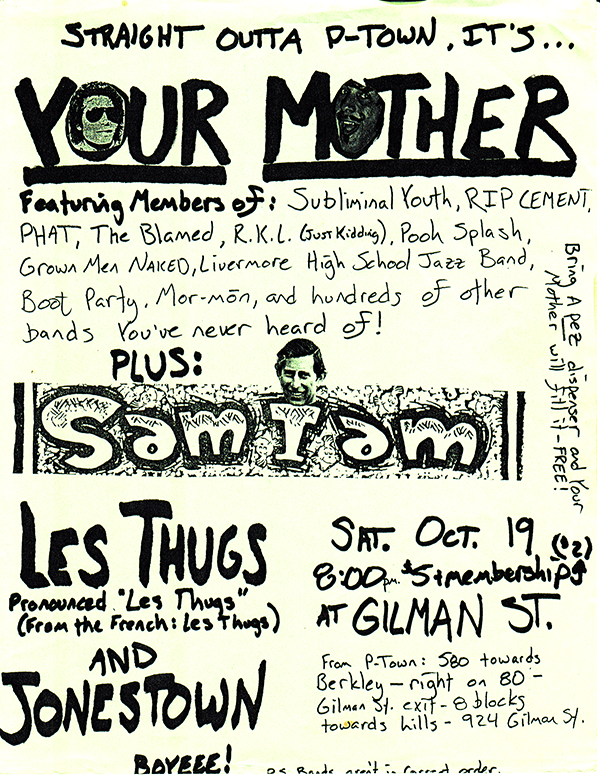 STRAIGHT OUTTA P-TOWN, IT'S...
YOUR MOTHER
Featuring Members of: Subliminal Youth, RIP CEMENT,
PHAT, The Blamed, R.K.L. (Just Kidding), Pooh Splash,
Grown Men NAKED, Livermore High School Jazz Band,
Boot Party, Mor-mōn, and hundreds of other
bands You've never heard of!
Bring A pez dispenser and Your
Mother will fill it - FREE!
PLUS:
Sam I am
LES THUGS
Pronounced "Les Thugs"
(From the French: Les Thugs)
AND
JONESTOWN
BOYEEE!
SAT. OCT. 19
($2)
8:00 pm. $5 + membership
AT GILMAN ST.
From P-Town: 580 towards
Berkley - right on 80 -
Gilman St. exit - 8 blocks
towards hills - 924 Gilman St.
P.S. Bands aren't in correct order.